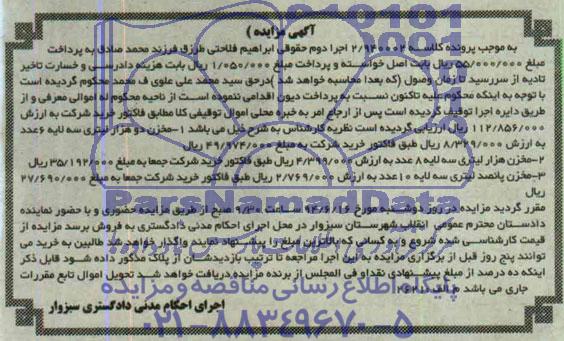 آگهی مزایده )
به موجب پرونده کلاسه ۲/۹۴۰۰۰۲ اجرا دوم حقوقی ابراهیم فلاحتی طرزق فرزند محمد صادق به پرداخت
مبلغ ۵۵/۰۰۰/۰۰۰ ریال بابت اصل خواسته و پرداخت مبلغ ۱/۰۵۰/۰۰۰ ریال بابت هزینه دادرسی و خسارت تاخیر
تادیه از سررسید تا زمان وصول (که بعدا محاسبه خواهد شد ) درحق سید محمد علی علوی ف محمد محکوم گردیده است
با توجه به اینکه محکوم علیه تاکنون نسبت به پرداخت دیون اقدامی ننموده است از ناحیه محکوم له اموالی معرفی و از
طریق دایره اجرا توقیف گردیده است پس از ارجاع امر به خبره محلی اموال توقیفی کلا مطابق فاکتور خرید شرکت به ارزش
۱۱۲/۸۵۶/۰۰۰ ریال ارزیابی گردیده است نظریه کارشناس به شرح ذیل می باشد ۱-مخزن دو هزار لیتری سه لایه ۶عدد
به ارزش ۸/۳۲۹/۰۰۰ ریال طبق فاکتور خرید شرکت به مبلغ ۴۹/۹۷۴/۰۰۰ ریال
۲-مخزن هزار لیتری سه لایه ۸ عدد به ارزش ۴/۳۹۹/۰۰۰ ریال طبق فاکتور خرید شرکت جمعا به مبلغ ۳۵/۱۹۲/۰۰۰ ریال
۳-مخزن پانصد لیتری سه لایه ۱۰عدد به ارزش ۲/۷۶۹/۰۰۰ ریال طبق فاکتور خرید شرکت جمعا به مبلغ ۲۷/۶۹۰/۰۰۰
ریال
مقرر گردید مزایده در روز دوشنبه مورخ ۹۴/۶/۱۶ ساعت ۹/۳۰ صبح از طریق مزایده حضوری و با حضور نماینده
دادستان محترم عمومی انقلاب شهرستان سبزوار در محل اجرای احکام مدنی دادگستری به فروش برسد مزایده از
قیمت کارشناسی شده شروع و به کسانی که بالاترین مبلغ را پیشنهاد نماینده واگذار خواهد شد طالبین به خرید می
توانند پنج روز قبل از برگزاری مزایده به این اجرا مراجعه تا ترتیب بازدیدشان از پلاک مذکور داده شود قابل ذکر
اینکه ده درصد از مبلغ پیشنهادی نقدا و فی المجلس از برنده مزایده دریافت خواهد شد تحویل اموال تابع مقررات
جاری می باشد
اجرای احکام مدنی دادگستری سبزوار
ParsNamadData
پایگاه اطلاع رسانی مناقصه و مزایده
۰۲۱-۸۸۳۴۹۶۷۰-۵